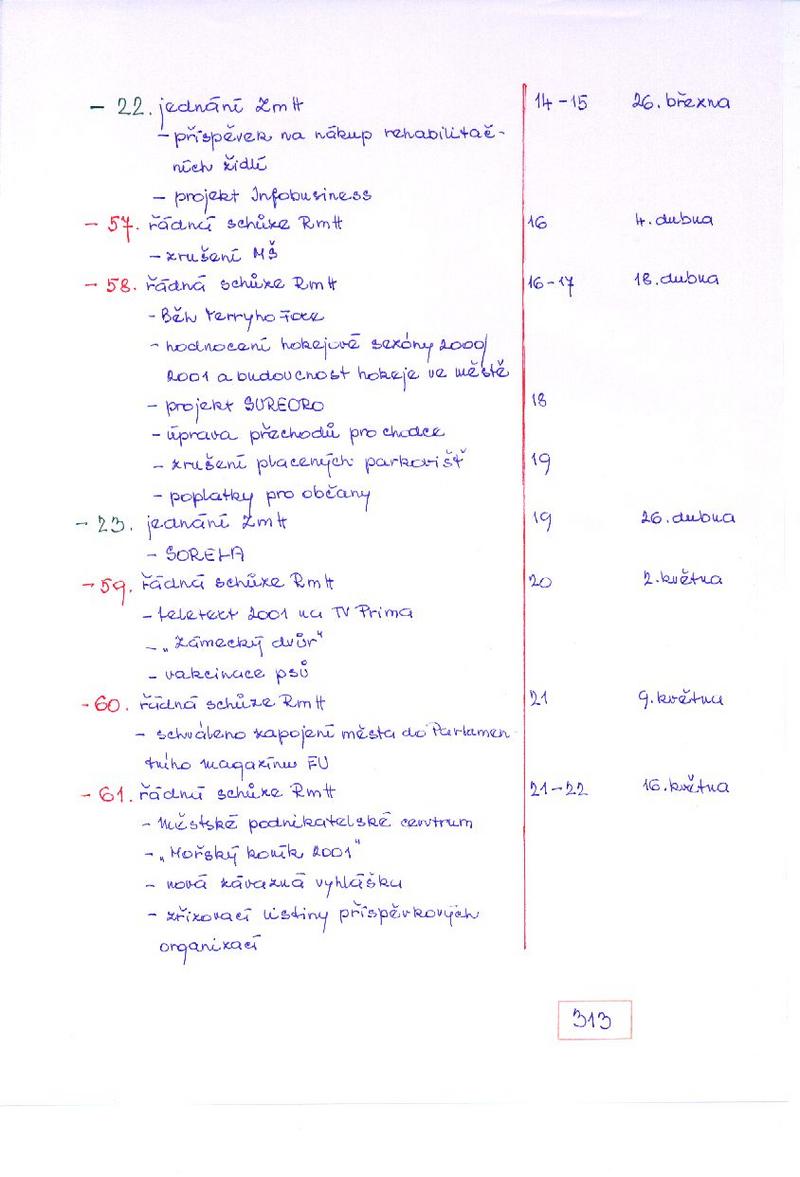 - 22. jednání ZmH 14-15 26. března
- příspěvek na nákup rehabilitač-
ních židlí
- projekt Infobusiness
- 57. řádná schůze RmH 16 4. dubna
- zrušení MŠ
- 58. řádná schůze RmH 16-17 18. dubna
- Běh Terryho Foxe
- hodnocení hokejové sezóny 2000/
2001 a budoucnost hokeje ve městě
- projekt SUREORO 18
- úprava přechodů pro chodce
- zrušení placených parkovišť 19
- poplatky pro občany
- 23. jednání ZmH 19 26. dubna
- SOREHA
- 59. řádná schůze RmH 20 2. května
- teletext 2001 na TV Prima
- „Zámecký dvůr“
- vakcinace psů
- 60. řádná schůze RmH 21 9. května
- schváleno zapojení města do Parlamen
tního magazínu EU
- 61. řádná schůze RmH 21-22 16. května
- Městské podnikatelské centrum
- „Mořský koník 2001“
- nová závazná vyhláška
- zřizovací listiny příspěvkových
organizací
313